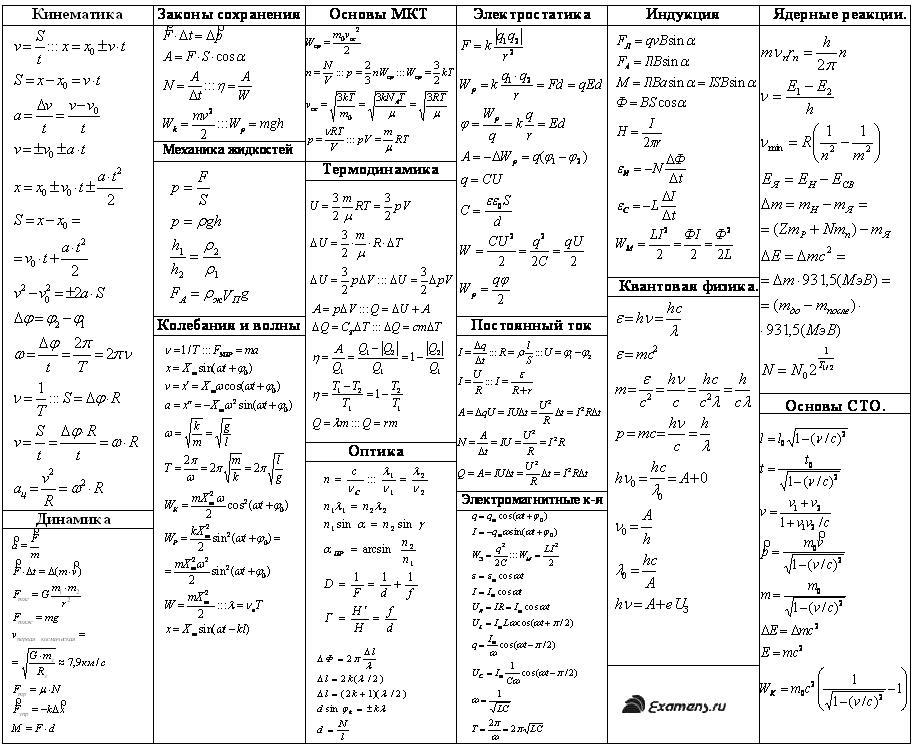 Кинематика
v = S/t ::: x = x₀ ± v·t
S = x − x₀ = v·t
a = Δv/t = (v − v₀)/t
v = ±v₀ ± a·t
x = x₀ ± v₀·t ± a·t²/2
S = x − x₀ =
= v₀·t + a·t²/2
v² − v₀² = ±2a·S
Δφ = φ₂ − φ₁
ω = Δφ/t = 2π/T = 2πν
ν = 1/T ::: S = Δφ·R
v = S/t = Δφ·R/t = ω·R
aц = v²/R = ω²·R
Динамика
a = F/m
F·Δt = Δ(m·v)
F = G m₁·m₂/r²
F = mg
v первая космическая =
= √(G·m/R) ≈ 7,9км/с
F = μ·N
F = −kΔx
M = F·d
Законы сохранения
F·Δt = Δp
A = F·S·cosα
N = A/Δt ::: η = A/W
Wk = mv²/2 ::: Wp = mgh
Механика жидкостей
p = F/S
p = ρgh
h₁/h₂ = ρ₂/ρ₁
F_A = ρж Vп g
Колебания и волны
ν = 1/T ::: Fмвр = ma
x = Xm sin(ωt + φ₀)
v = x' = Xm ω cos(ωt + φ₀)
a = x'' = −Xm ω² sin(ωt + φ₀)
ω = √(k/m) = √(g/l)
T = 2π/ω = 2π√(m/k) = 2π√(l/g)
W_K = mX²m ω/2 cos²(ωt + φ₀)
W_P = kX²m/2 sin²(ωt + φ₀) =
= mX²m ω²/2 sin²(ωt + φ₀)
W = mX²m/2 ::: λ = vв T
x = Xm sin(ωt − kl)
Основы МКТ
Wср = m₀vск²/2
n = N/V ::: p = 2/3 nWср ::: Wср = 3/2 kT
vск = √(3kT/m₀) = √(3kN_A T/μ) = √(3RT/μ)
p = νRT/V ::: pV = m/μ RT
Термодинамика
U = 3/2 m/μ RT = 3/2 pV
ΔU = 3/2 · m/μ · R·ΔT
ΔU = 3/2 pΔV ::: ΔU = 3/2 Δp V
A = pΔV ::: Q = ΔU + A
ΔQ = C ΔT ::: ΔQ = cmΔT
η = A/Q₁ = (Q₁ − |Q₂|)/Q₁ = 1 − |Q₂|/Q₁
η = (T₁ − T₂)/T₁ = 1 − T₂/T₁
Q = λm ::: Q = rm
Оптика
n = c/vC ::: λ₁/v₁ = λ₂/v₂
n₁λ₁ = n₂λ₂
n₁ sin α = n₂ sin γ
αПР = arcsin n₂/n₁
D = 1/F = 1/d + 1/f
Γ = H'/H = f/d
ΔΦ = 2π Δl/λ
Δl = 2k(λ/2)
Δl = (2k+1)(λ/2)
d sin φk = ±kλ
d = N/l
Электростатика
F = k |q₁q₂|/r²
Wp = k q₁·q₂/r = Fd = qEd
φ = Wp/q = k q/r = Ed
A = −ΔWp = q(φ₁ − φ₂)
q = CU
C = εε₀S/d
W = CU²/2 = q²/2C = qU/2
Wp = qφ/2
Постоянный ток
I = Δq/Δt ::: R = ρ l/S ::: U = φ₁ − φ₂
I = U/R ::: I = ε/(R+r)
A = ΔqU = IUΔt = U²/R Δt = I²RΔt
N = A/Δt = IU = U²/R = I²R
Q = A = IUΔt = U²/R Δt = I²RΔt
Электромагнитные к-я
q = qm cos(ωt + φ₀)
I = −qm ω sin(ωt + φ₀)
WЭ = q²/2C ::: WM = LI²/2
ε = εm cos ωt
I = Im cos ωt
UR = IR = Im cos ωt
UL = Im Lω cos(ωt + π/2)
q = Im/ω cos(ωt − π/2)
UC = Im 1/Cω cos(ωt − π/2)
ω = 1/√LC
T = 2π/ω = 2π√LC
Индукция
FЛ = qvB sin α
FA = IlB sin α
M = IlBa sin α = ISB sin α
Φ = BS cos α
H = I/2πr
εИ = −N ΔΦ/Δt
εC = −L ΔI/Δt
WM = LI²/2 = ΦI/2 = Φ²/2L
Квантовая физика.
ε = hν = hc/λ
ε = mc²
m = ε/c² = hν/c² = hc/c²λ = h/cλ
p = mc = hν/c = h/λ
hν₀ = hc/λ₀ = A + 0
ν₀ = A/h
λ₀ = hc/A
hν = A + eU₃
Examens.ru
Ядерные реакции.
mvn rn = h/2π n
ν = (E₁ − E₂)/h
νmin = R(1/n² − 1/m²)
EЯ = EН − EСВ
Δm = mН − mЯ =
= (ZmP + Nmn) − mЯ
ΔE = Δmc² =
= Δm·931,5(МэВ) =
= (mдо − mпосле)·
·931,5(МэВ)
N = N₀2^(1/T1/2)
Основы СТО.
l = l₀√(1 − (v/c)²)
t = t₀/√(1 − (v/c)²)
v = (v₁ + v₂)/(1 + v₁v₂/c)
p = m₀v/√(1 − (v/c)²)
m = m₀/√(1 − (v/c)²)
ΔE = Δmc²
E = mc²
WK = m₀c²(1/√(1 − (v/c)²) − 1)